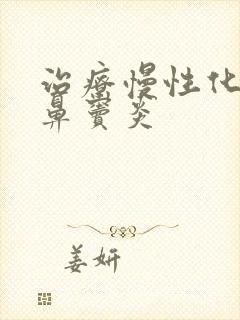 治疗慢性化
鼻窦炎
姜妍